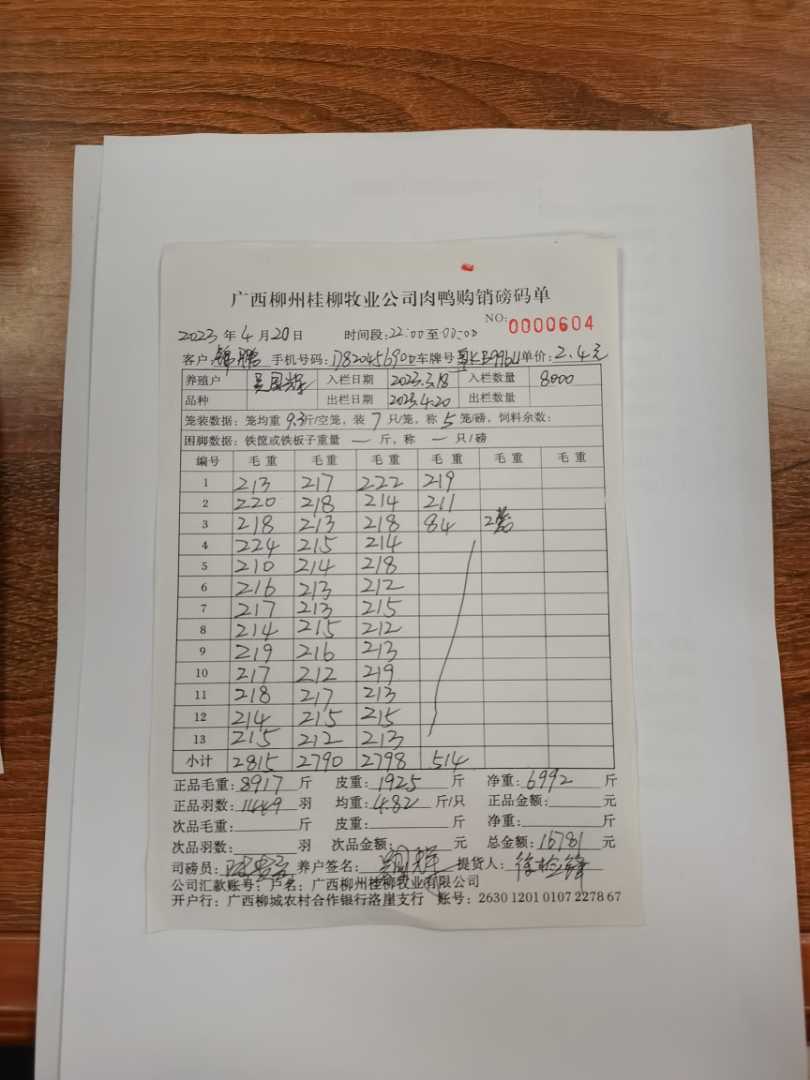 广西柳州桂柳牧业公司肉鸭购销磅码单
NO: 0000604
2023 年 4 月 20 日 时间段:22:00 至 00:00
客户: 锦鹏 手机号码: 车牌号 单价: 2.4元
养殖户 吴国辉 入栏日期 2023.3.18 入栏数量 8000
品种 出栏日期 2023.4.20 出栏数量
笼装数据: 笼均重 9.3 斤/空笼, 装 7 只/笼, 称 5 笼/磅, 饲料余数:
困脚数据: 铁筐或铁板子重量 — 斤, 称 — 只/磅
编号 毛重 毛重 毛重 毛重 毛重 毛重
1 213 217 222 219
2 220 218 214 211
3 218 213 218 84 2
4 224 215 214
5 210 214 218
6 216 213 212
7 217 213 215
8 214 215 212
9 219 216 213
10 217 212 219
11 218 217 213
12 214 215 215
13 215 212 213
小计 2815 2790 2798 514
正品毛重: 8917 斤 皮重: 1925 斤 净重: 6992 斤
正品羽数: 1449 羽 均重: 4.82 斤/只 正品金额: 元
次品毛重: 斤 皮重: 斤 净重: 斤
次品羽数: 羽 次品金额: 元 总金额: 16781 元
司磅员: 养户签名: 提货人:
公司汇款账号: 户名: 广西柳州桂柳牧业有限公司
开户行: 广西柳城农村合作银行洛崖支行 账号: 2630 1201 0107 2278 67